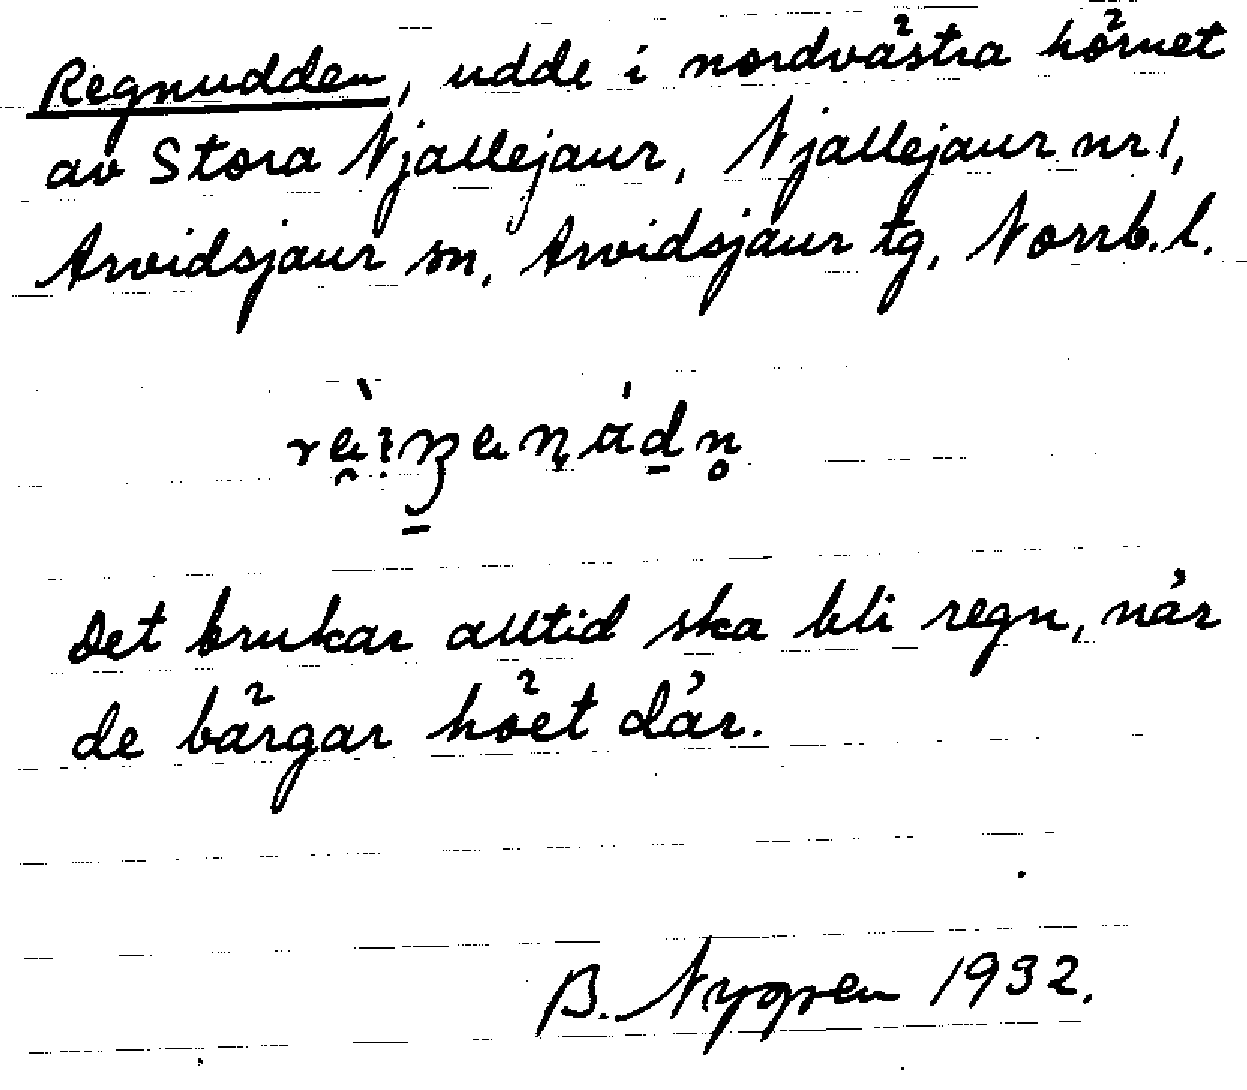 Regnudden, udde i nordvästra hörnet
av Stora Njallejaur, Njallejaur nr 1,
Arvidsjaur sn, Arvidsjaur tg, Norrb. l.
Det brukar alltid ska bli regn, når
de bärgar höet dår.
B. Nygren 1932.